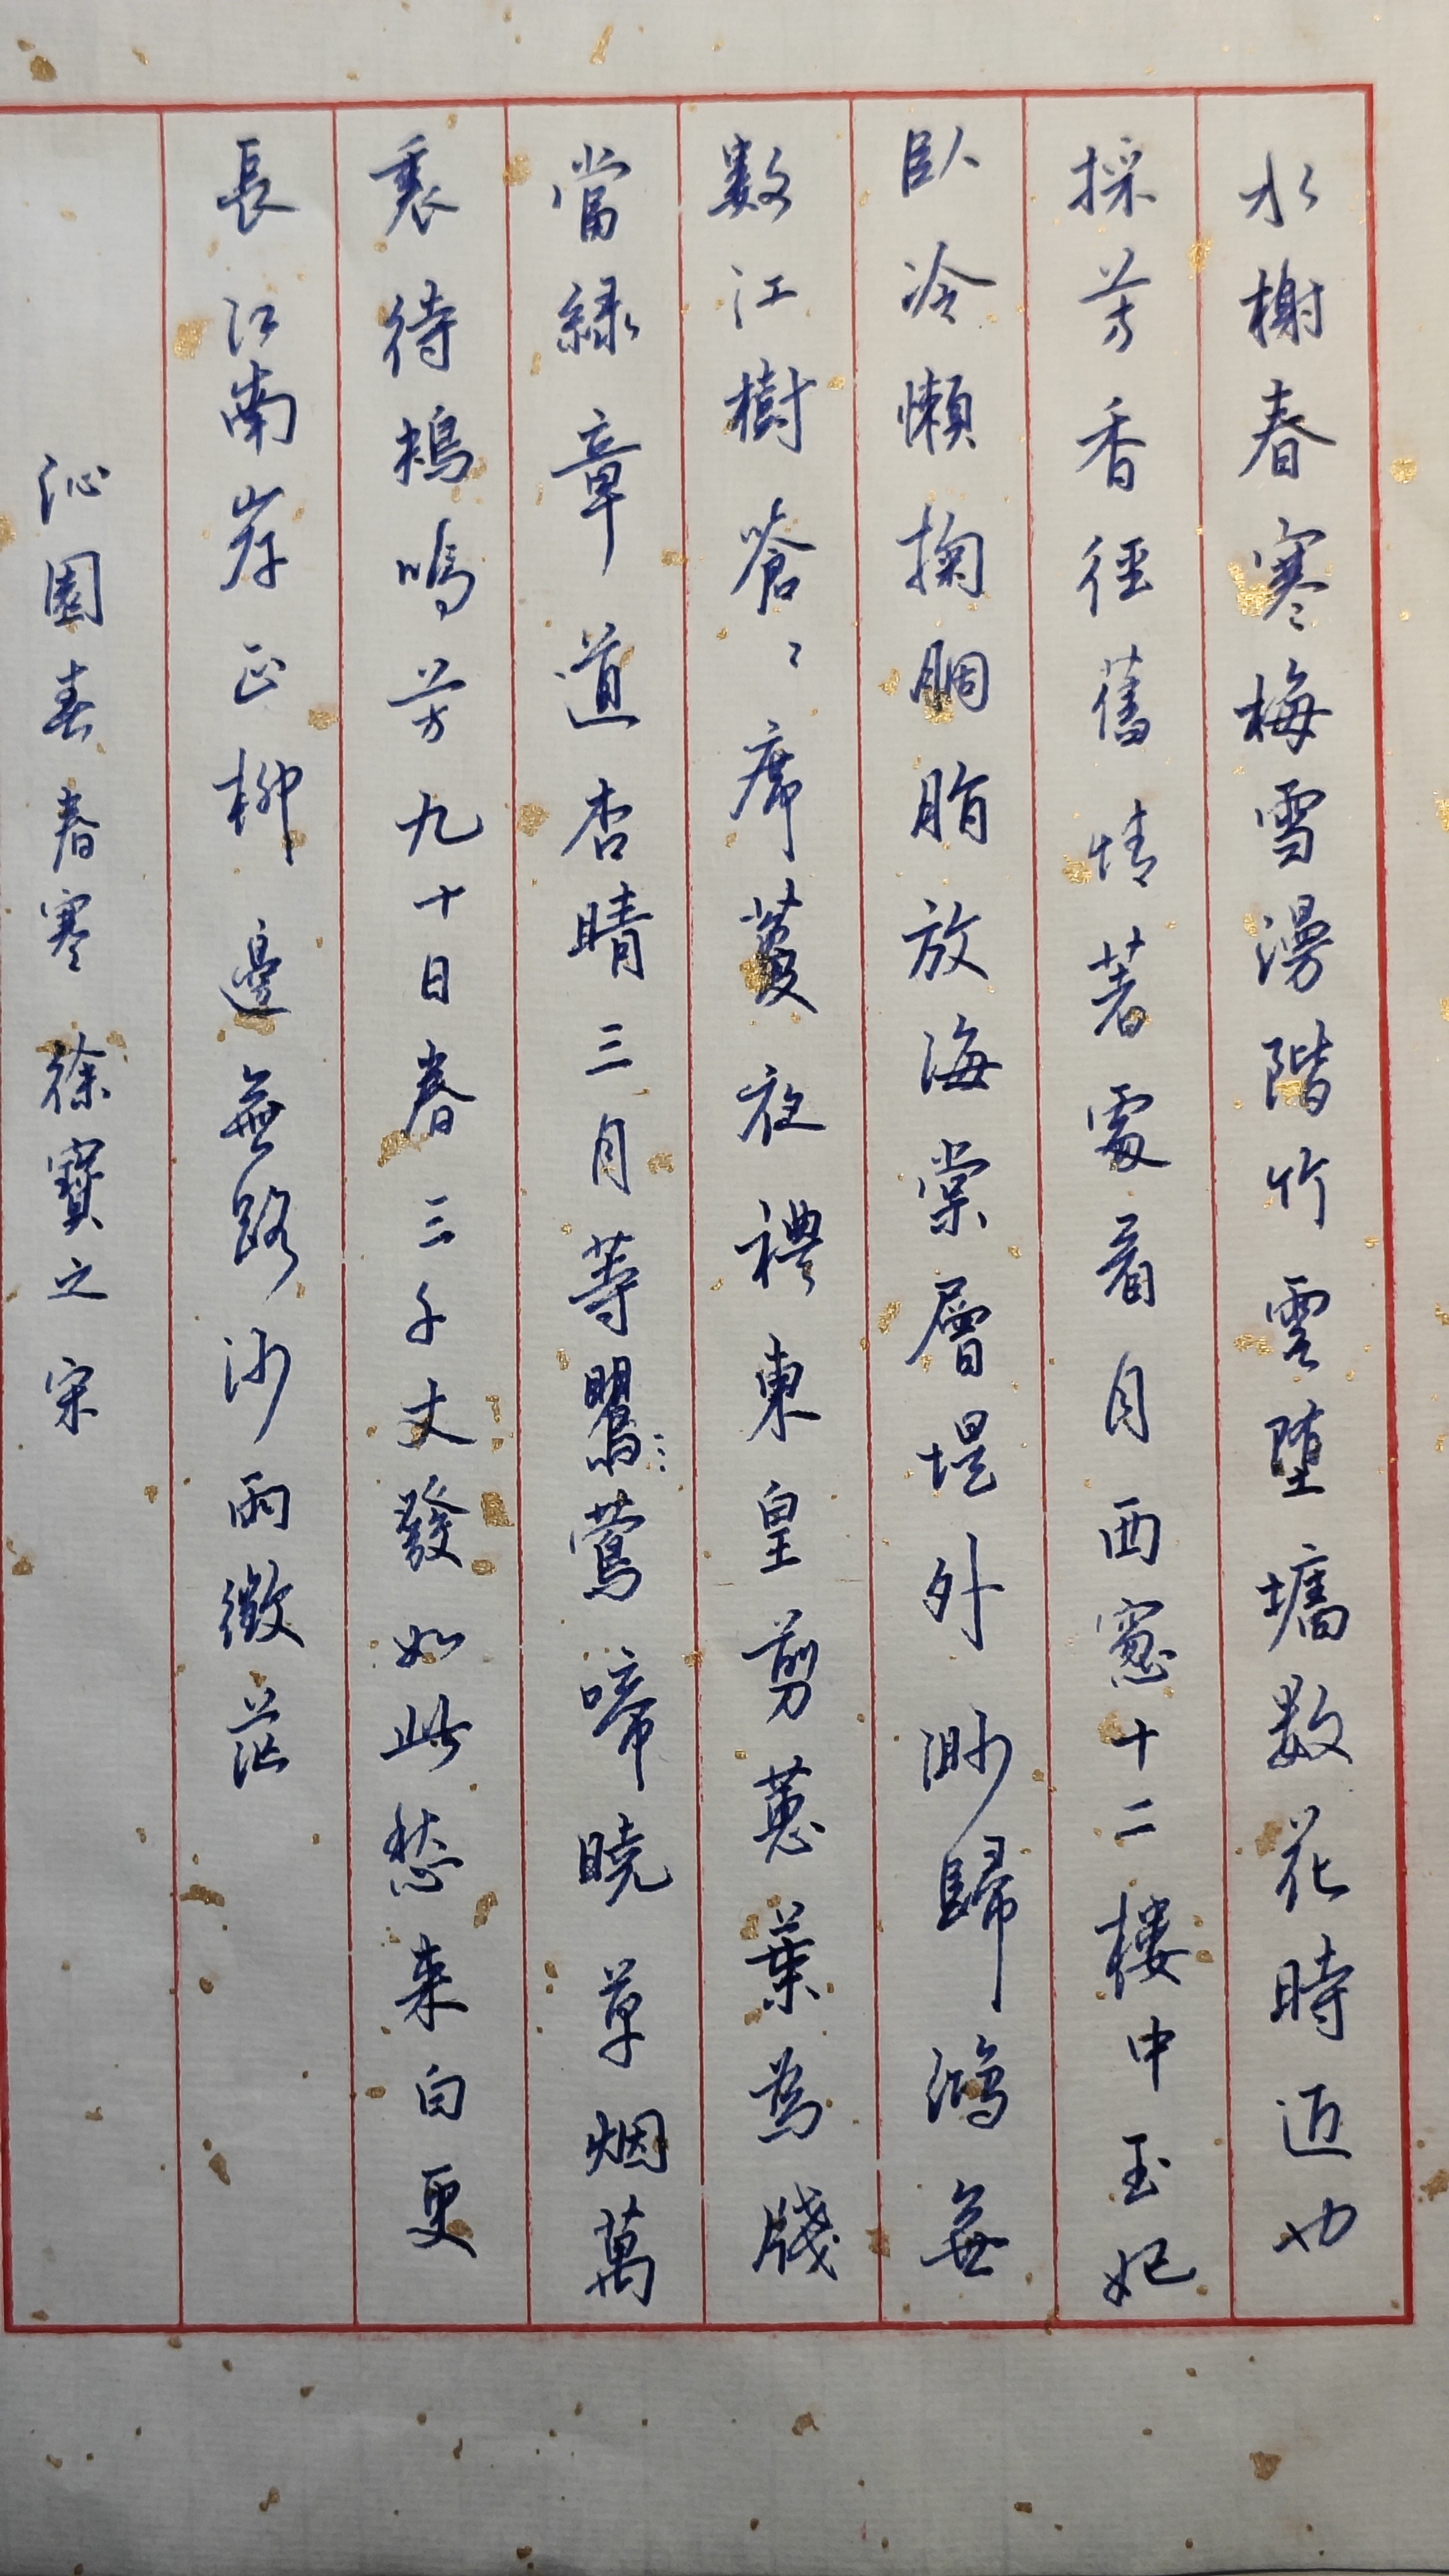 水榭春寒梅雪漫階竹雲墮墻数花時近也
採芳香徑舊情著處看月西窻十二樓中玉妃
臥冷懶掬胭脂放海棠層堤外渺歸鴻無
数江樹蒼〻席蔓夜禮東皇剪蕙葉為牋
當綠章道杏晴三月等鸎鶯啼曉草烟萬
裏待鴂鳴芳九十日春三千丈發如此愁来白更
長江南岸正柳邊無路沙雨微茫
沁園春春寒徐寶之宋